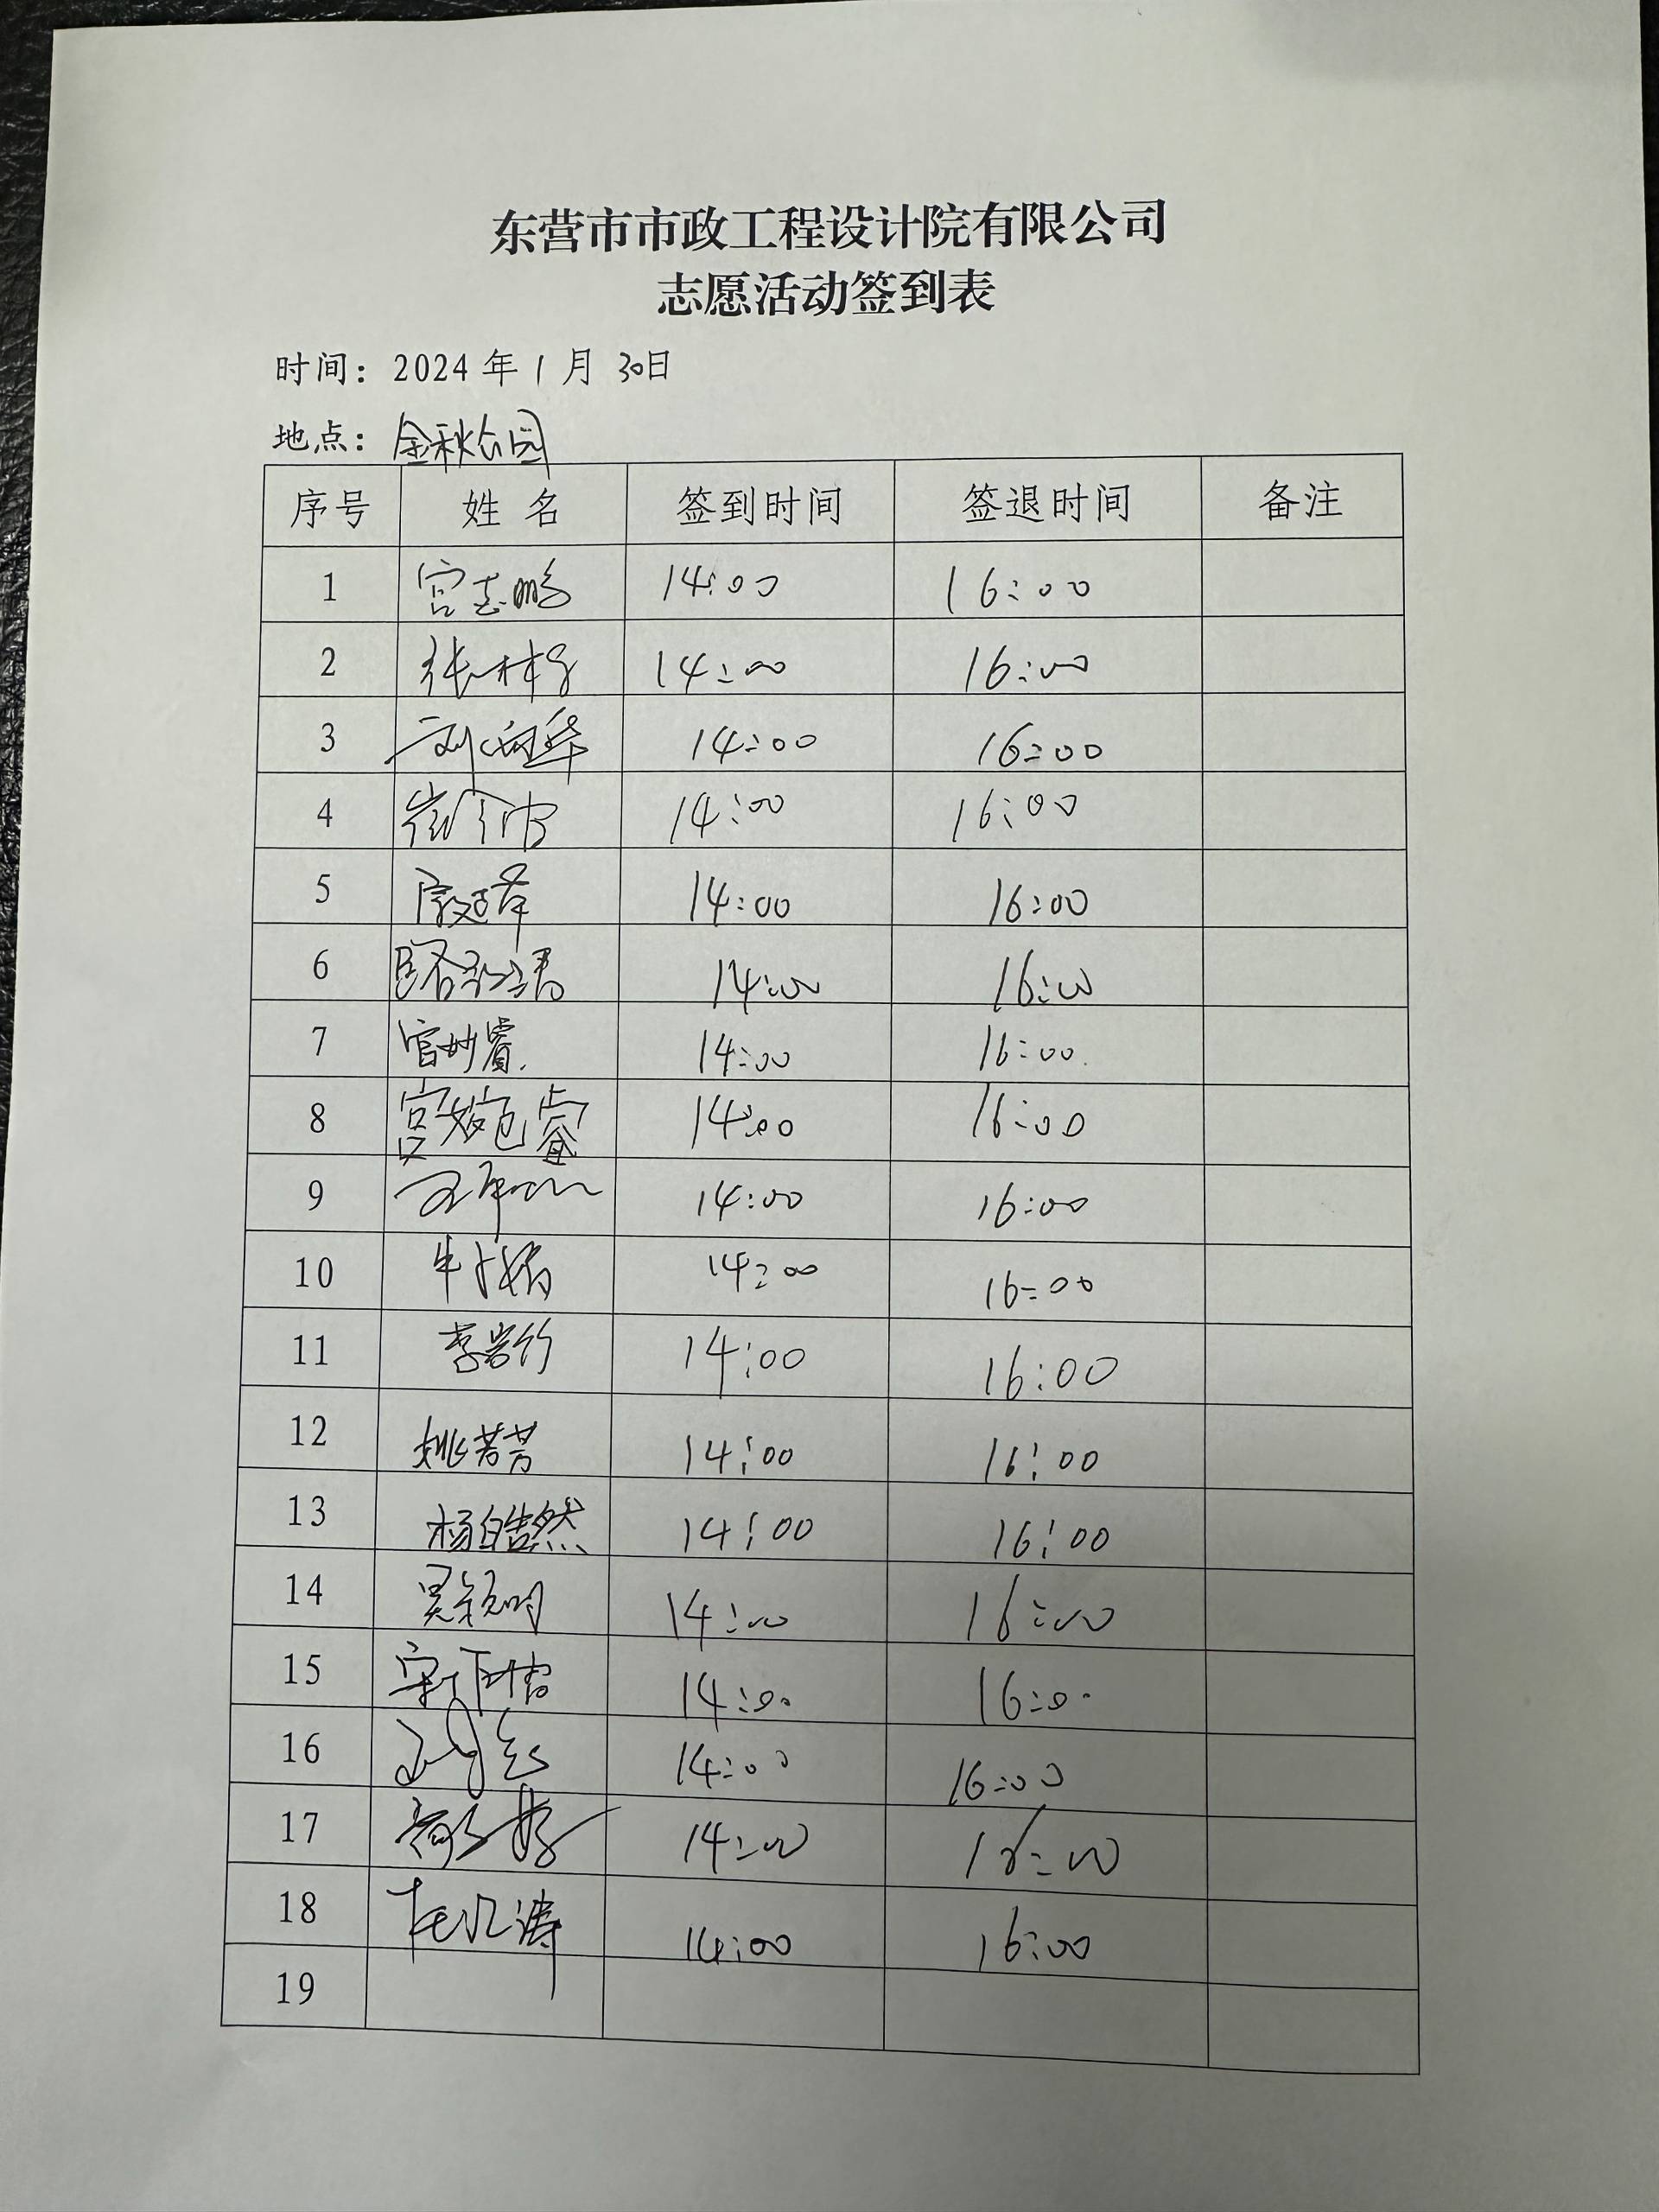 东营市市政工程设计院有限公司
志愿活动签到表
时间：2024 年 1 月 30日
地点：金秋公园
序号 姓 名 签到时间 签退时间 备注
1 宫志鹏 14:00 16:00
2 张 14:00 16:00
3 刘 14:00 16:00
4 崔 14:00 16:00
5 14:00 16:00
6 14:00 16:00
7 官妙睿 14:00 16:00
8 14:00 16:00
9 14:00 16:00
10 牛 14:00 16:00
11 李岩竹 14:00 16:00
12 姚芳芳 14:00 16:00
13 杨皓然 14:00 16:00
14 吴 14:00 16:00
15 宋 14:00 16:00
16 14:00 16:00
17 14:00 16:00
18 涛 14:00 16:00
19